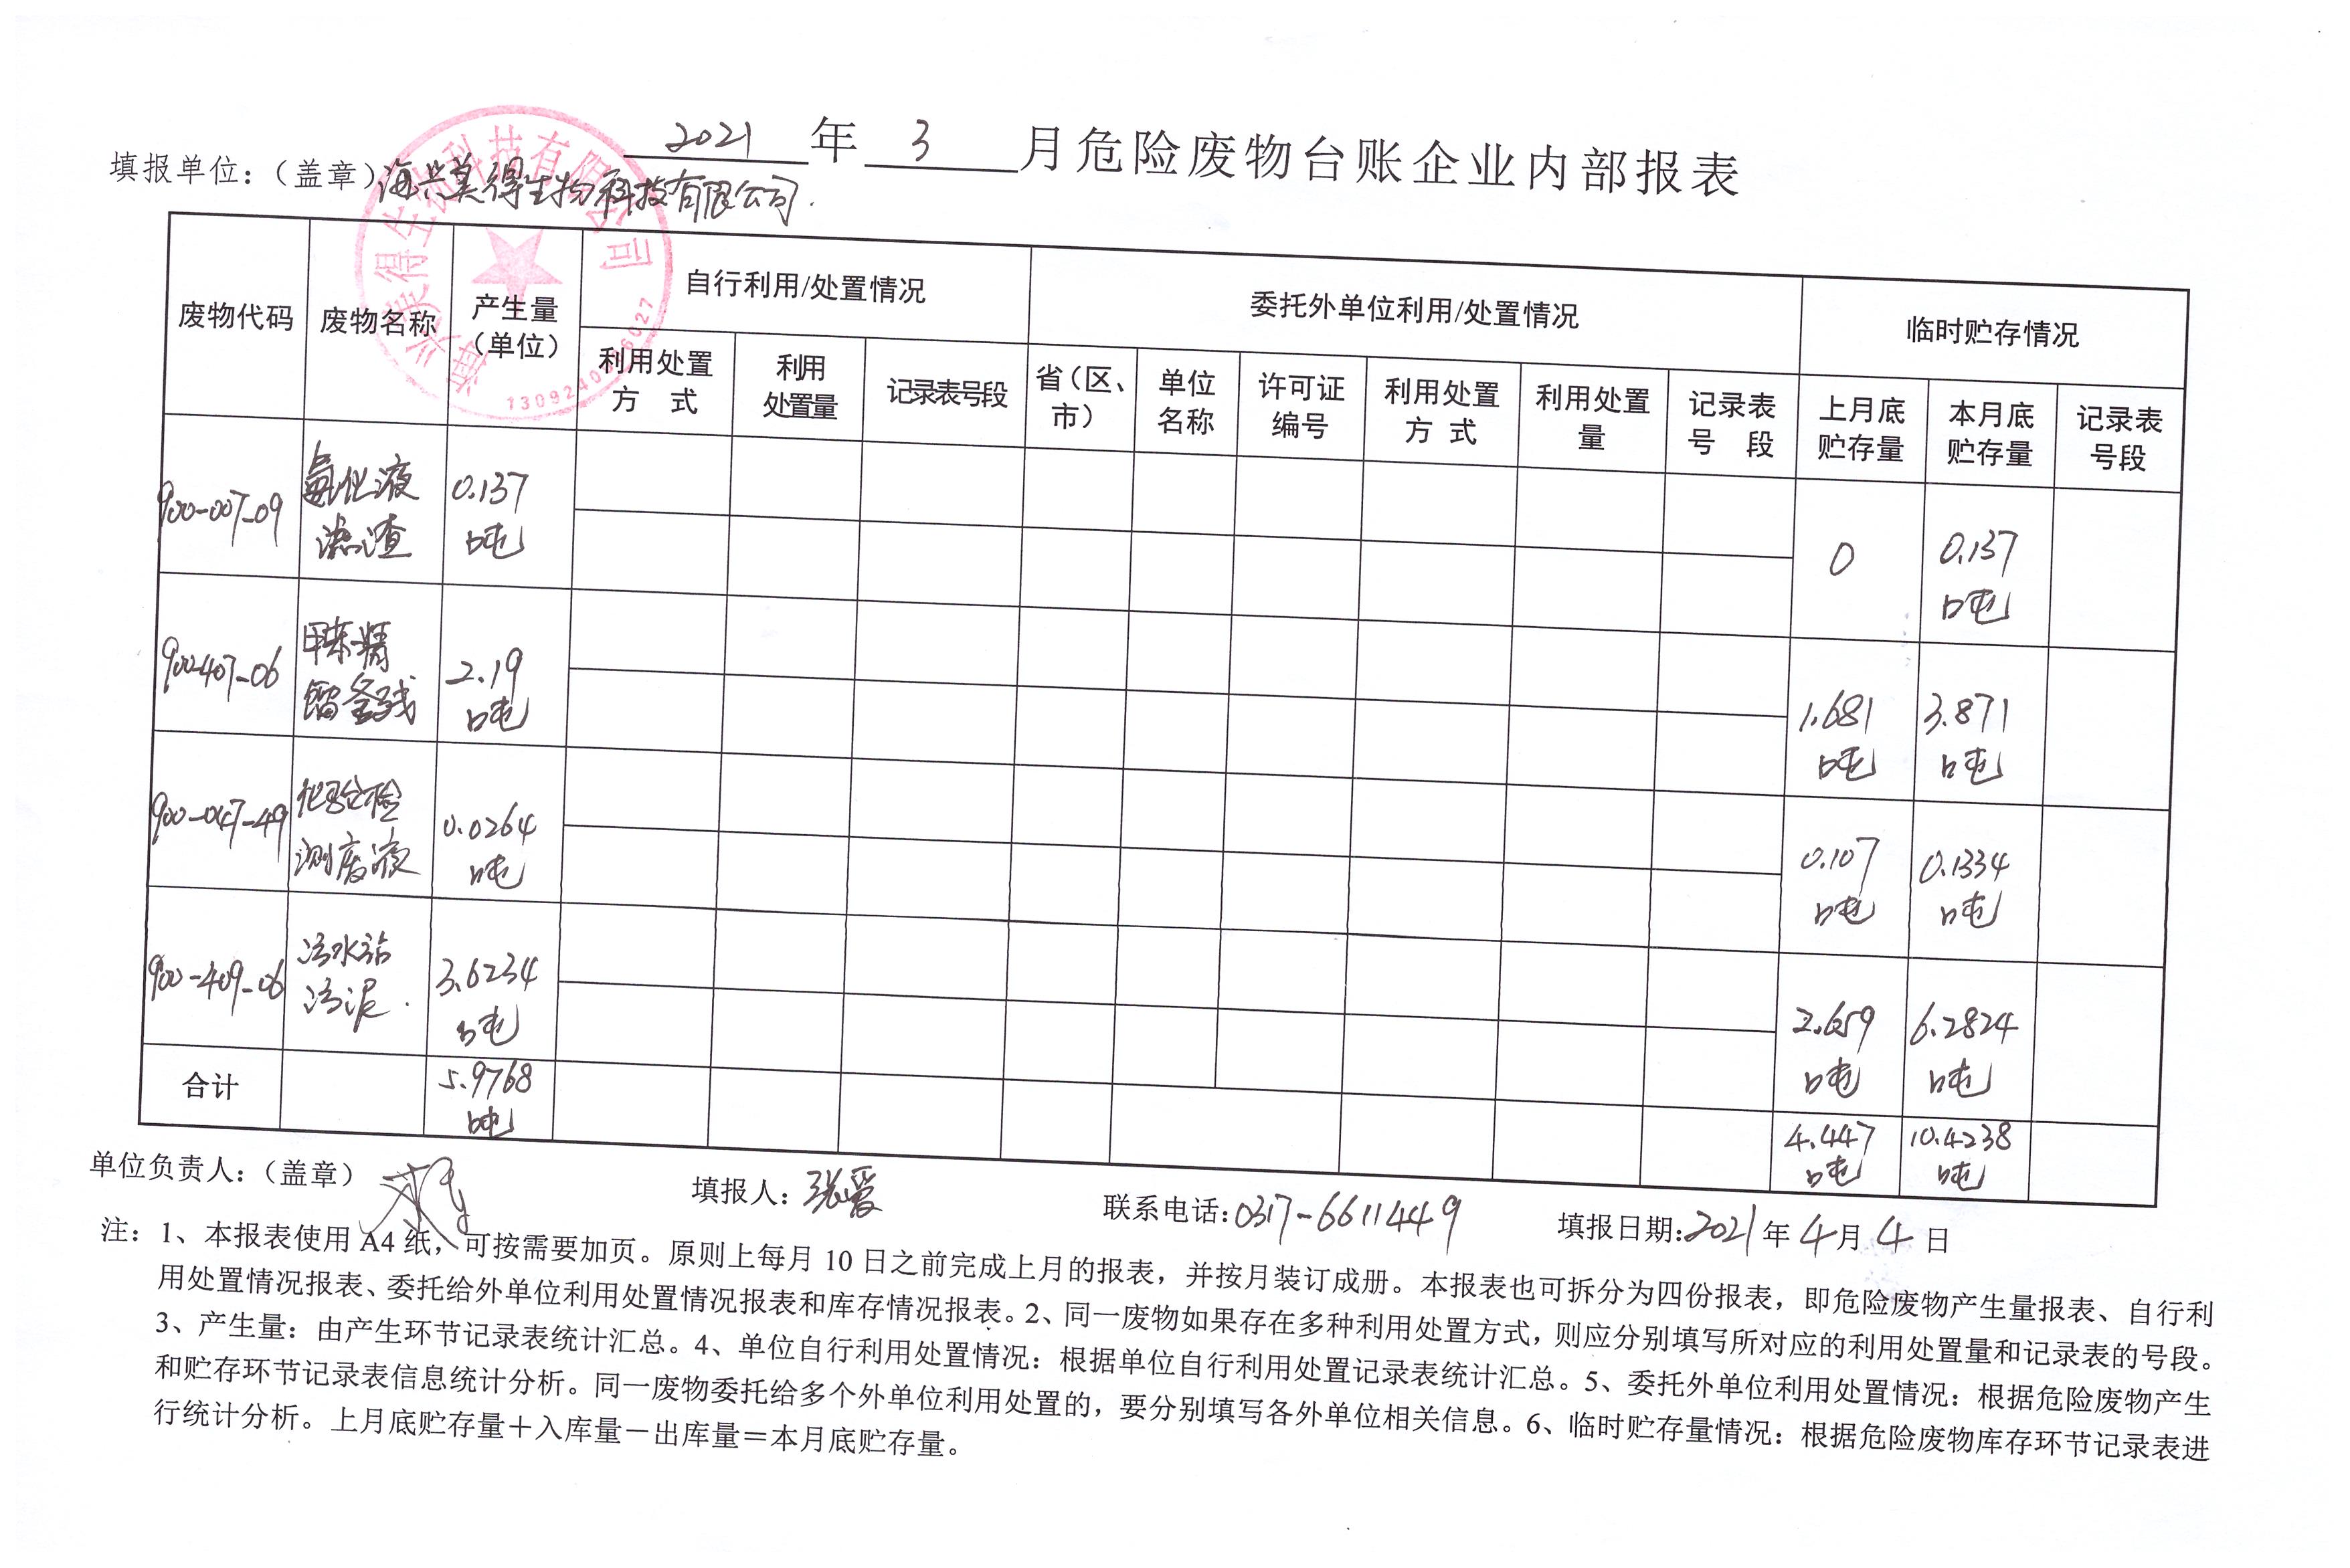 2021年3月危险废物台账企业内部报表
填报单位：（盖章）海兴美得生物科技有限公司.
海兴美得生物科技有限公司
废物代码 废物名称 产生量（单位） 自行利用/处置情况 委托外单位利用/处置情况 临时贮存情况
利用处置方 式 利用处置量 记录表号段 省（区、市） 单位名称 许可证编号 利用处置方 式 利用处置量 记录表号 段 上月底贮存量 本月底贮存量 记录表号段
900-007-09 氨化液滤渣 0.137吨 0 0.137吨
900-407-06 甲苯精馏釜残 2.19吨 1.681吨 3.871吨
900-047-49 化验检测废液 0.0264吨 0.107吨 0.1334吨
900-409-06 污水站污泥. 3.6234吨 2.659吨 6.2824吨
合计 5.9768吨 4.447吨 10.4238吨
单位负责人：（盖章） 填报人：张爱 联系电话：0317-6611449 填报日期：2021年4月4日
注：1、本报表使用 A4 纸，可按需要加页。原则上每月 10 日之前完成上月的报表，并按月装订成册。本报表也可拆分为四份报表，即危险废物产生量报表、自行利
用处置情况报表、委托给外单位利用处置情况报表和库存情况报表。2、同一废物如果存在多种利用处置方式，则应分别填写所对应的利用处置量和记录表的号段。
3、产生量：由产生环节记录表统计汇总。4、单位自行利用处置情况：根据单位自行利用处置记录表统计汇总。5、委托外单位利用处置情况：根据危险废物产生
和贮存环节记录表信息统计分析。同一废物委托给多个外单位利用处置的，要分别填写各外单位相关信息。6、临时贮存量情况：根据危险废物库存环节记录表进
行统计分析。上月底贮存量＋入库量－出库量＝本月底贮存量。